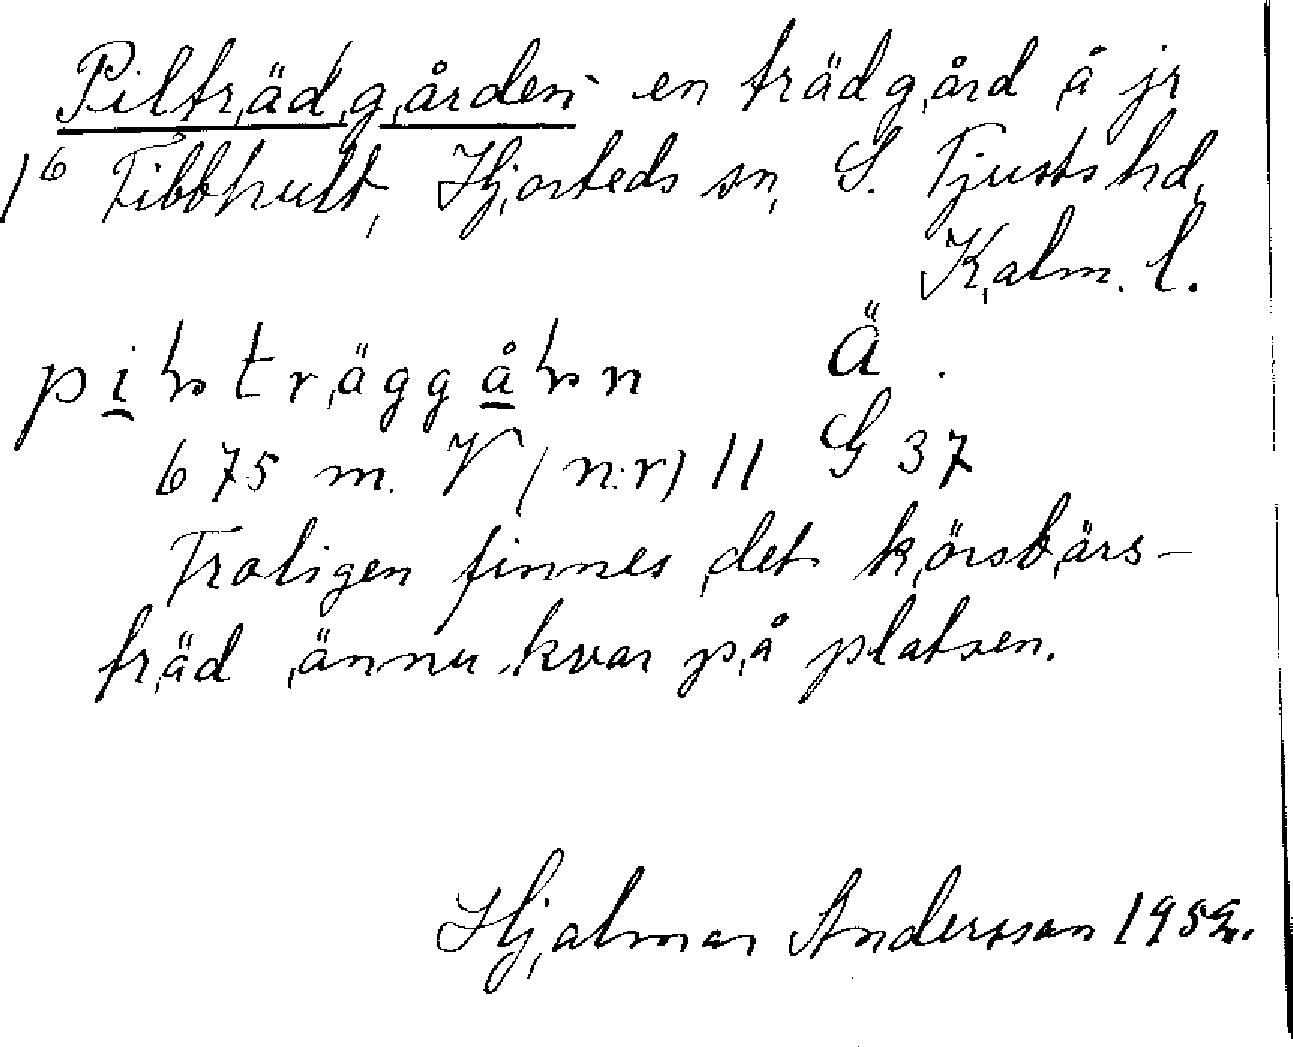 Pilträdgården - en trädgård å jr
1⁶ Tibbhult, Hjorteds sn, S. Tjusts hd,
Kalm. l.
träggå n Ä.
675 m. V (n:r) 11 G 37
Troligen finnes det körsbärs-
träd ännu kvar på platsen.
Hjalmar Andersson 1952.